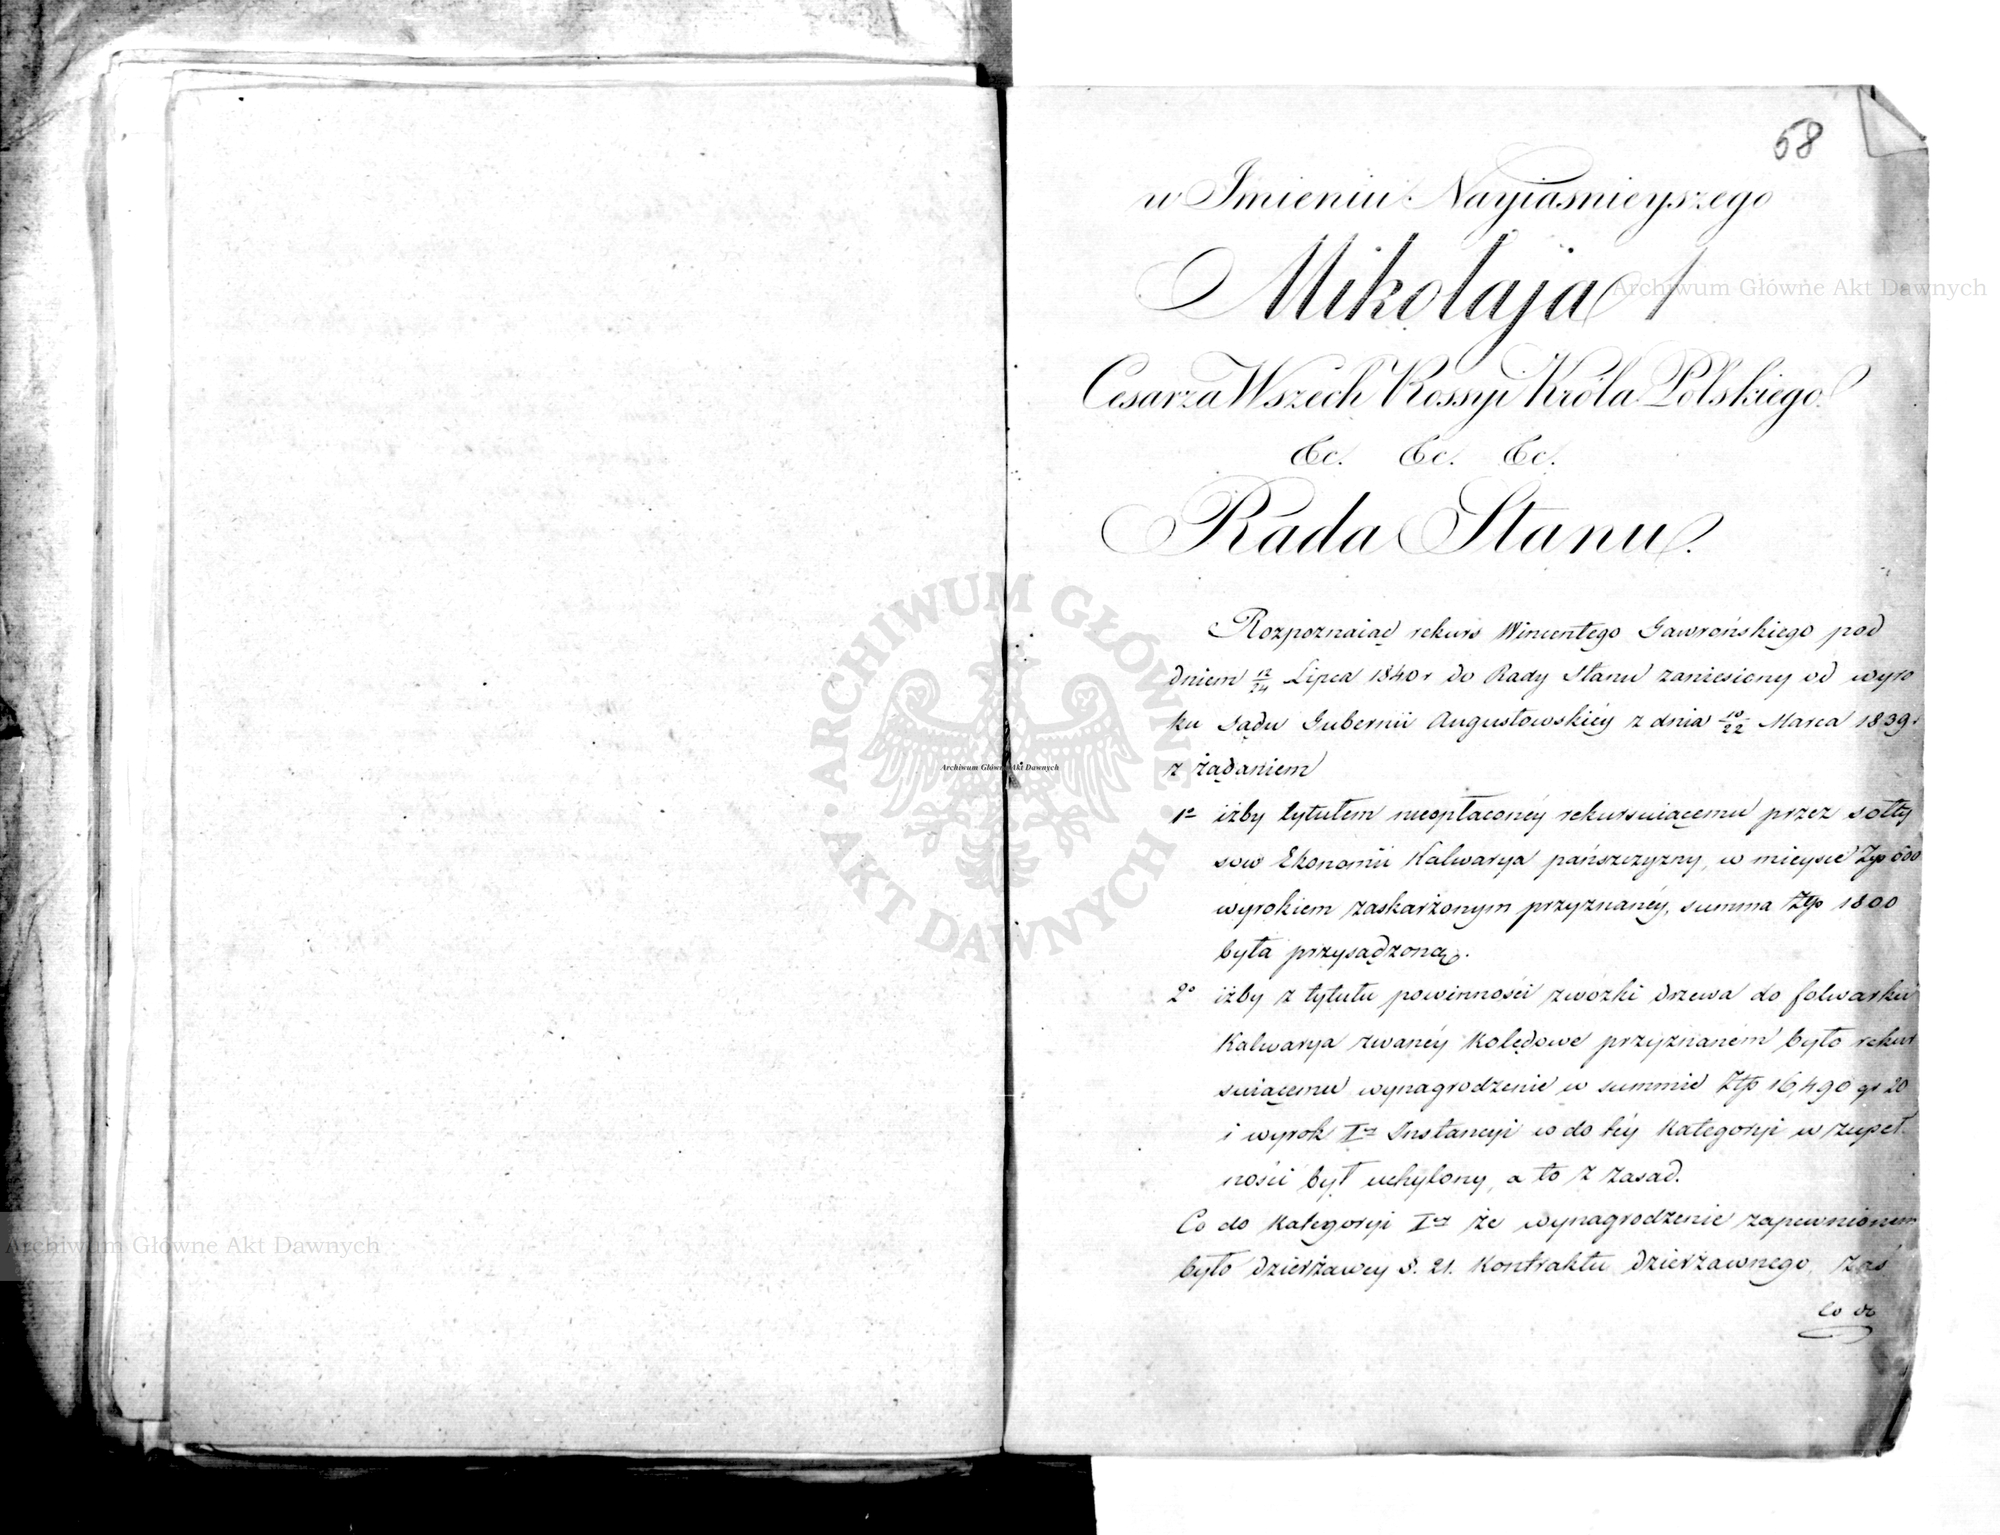 68
w Imieniu Nayiasnieyszego
Mikołaja I
Cesarza Wszech Rossyi Króla Polskiego.
&c. &c. &c.
Rada Stanu.
Rozpoznaiąc rekurs Wincentego Gawrońskiego pod
dniem 12/24 Lipca 1840 r do Rady Stanu zaniesiony od wyro
ku Sądu Gubernii Augustowskiéy z dnia 10/22 Marca 1839 r
z żądaniem
1o iżby tytułem nieopłaconéy rekursuiącemu przez sołty
sow Ekonomii Kalwarya pańszczyzny, w mieysce Złp 600
wyrokiem zaskarżonym przyznanéy, summa Złp 1800
była przysądzoną.
2o iżby z tytułu powinności zwózki drzewa do folwarku
Kalwarya zwanéy Kolędowe przyznaném było rekur
suiącemu wynagrodzenie w summie Złp 16,490 gr 20
i wyrok Iéj Instancyi co do téy Kategoryi w zupeł-
ności był uchylony, a to z zasad.
Co do Kategoryi Iéj że wynagrodzenie zapewnionem
było dzierżawcy §. 21. Kontraktu dzierżawnego, zaś
co do
Archiwum Główne Akt Dawnych
Archiwum Główne Akt Dawnych
Archiwum Główne Akt Dawnych
ARCHIWUM GŁÓWNE AKT DAWNYCH